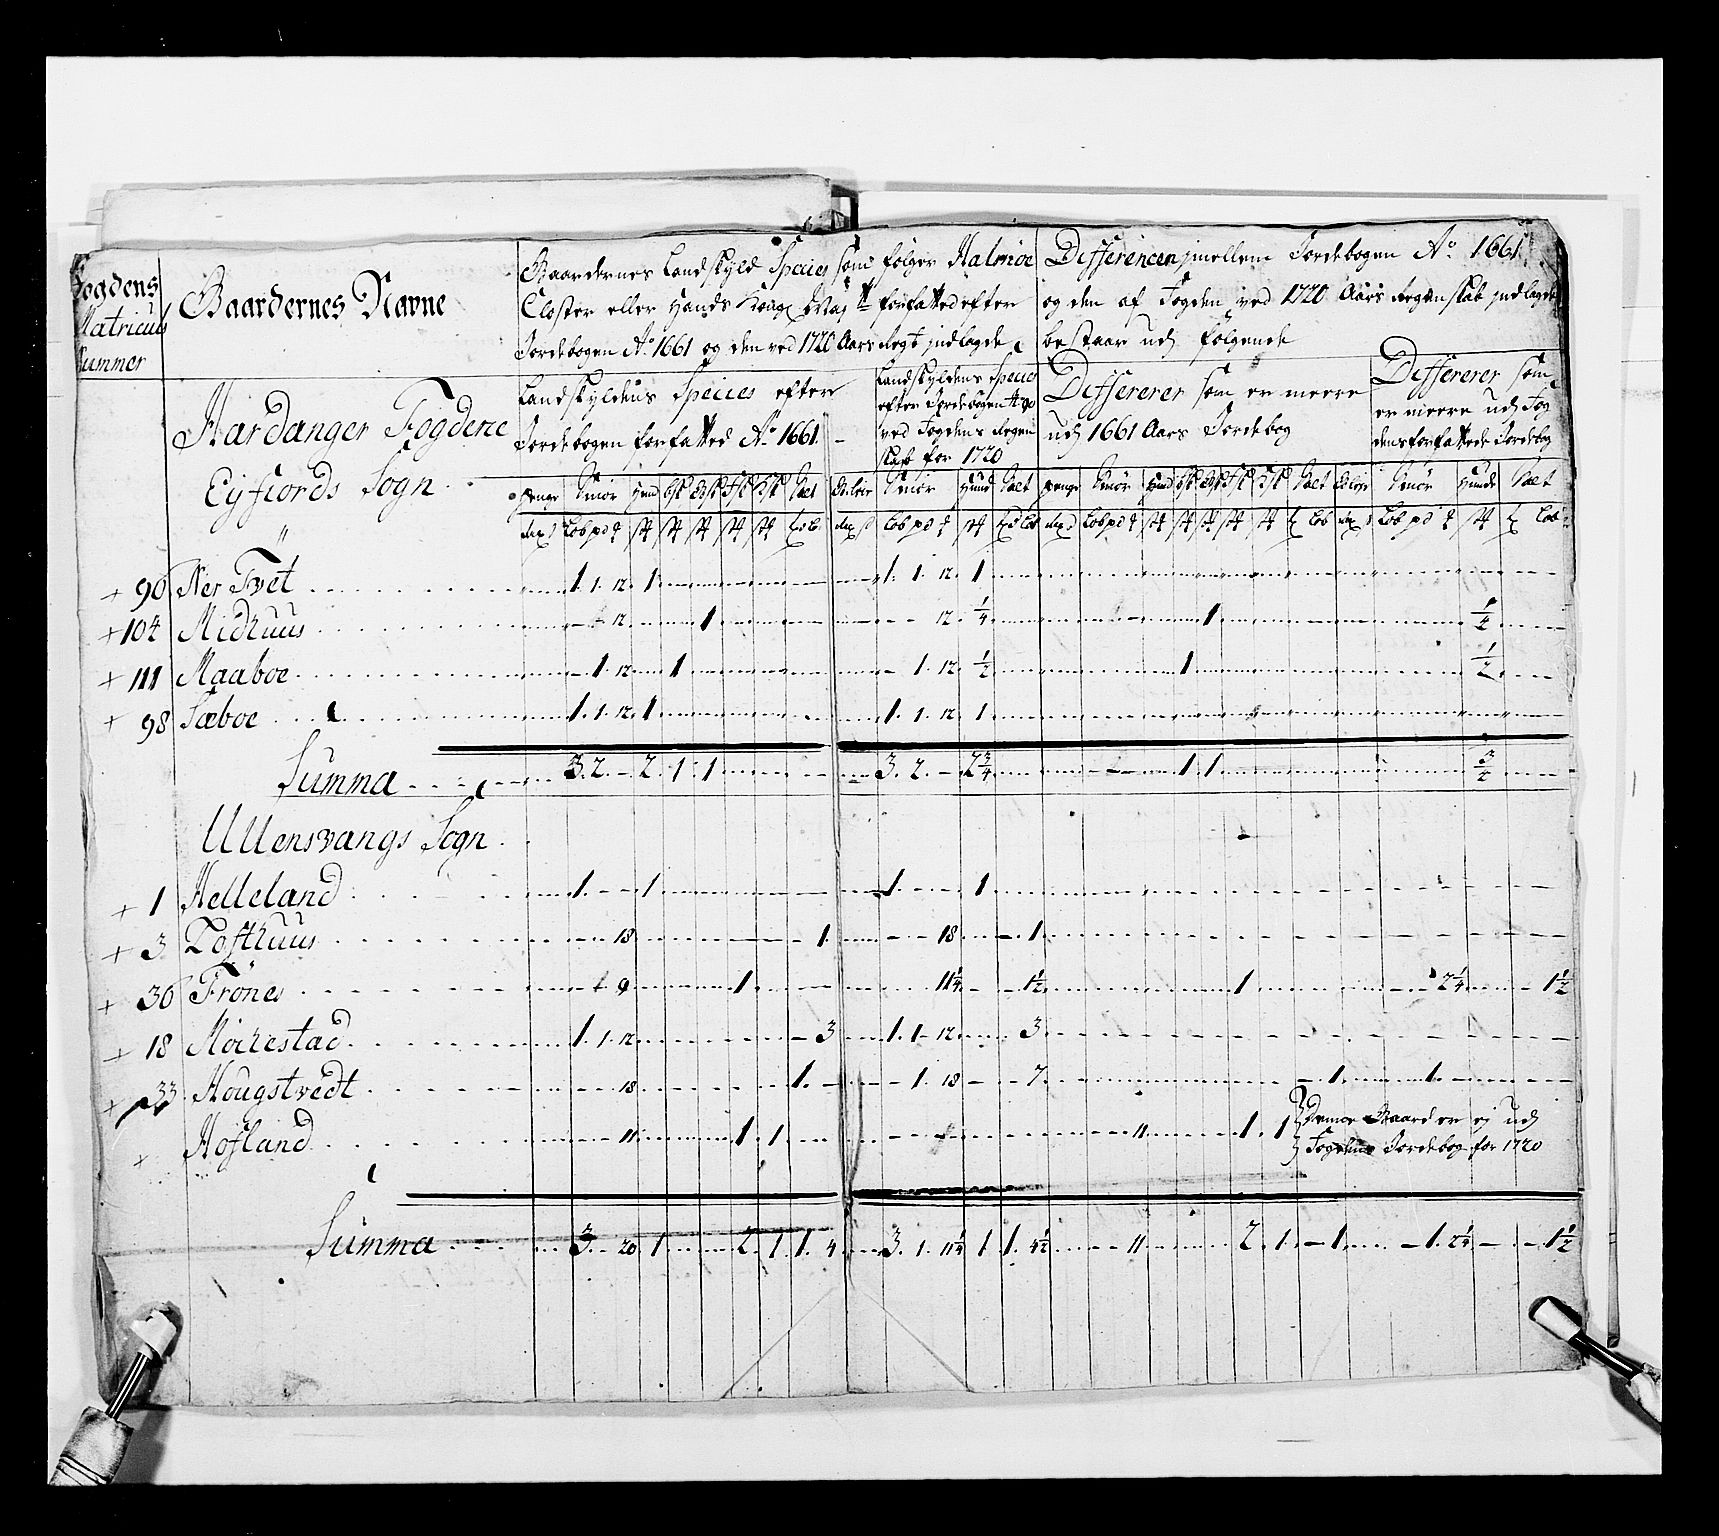 Fogdens Matricul Nummer
Gaardernes Navne
Gaardernes Landskyld Species som følger Halsnøe
Closter eller Hands Kongl May tt forfatted efter
Jordebogen Ao 1661 og den ved 1720 Aars Regt indlagde
Differencen imellem Jordebogen Ao 1661
og den af Fogden ved 1720 Aars Regenskab indlagde
bestaar udj følgende
Hardanger Fogderie
Landskyldens Species efter
Jordebogen forfatted Ao 1661
Landskyldens Species
efter Jordebogen
ved Fogdens Regen
skab for 1720
Differerer som er meere
udj 1661 Aars Jordebog
Differerer som
er meere udj Fog
dens forfattede Jordebog
Eyfiords Sogn
penge Smör Hud Salt Smör Hund Salt penge Smör Hud Salt Smör Hunde Salt
+ 90 Ner Tvet 1. 1. 12. 1 1. 1. 12. 1
+ 104 Midhuus 12. 1 12. 1/4 1 1/4
+ 111 Maaboe 1. 12 1 1. 12. 1/2 1 1/2
+ 98 Sæboe 1. 1. 12. 1 1. 1. 12. 1
Summa 3. 2. - 2. 1. 1 3. 2. - 2 3/4 1. 1 3/4
Ullensvangs Sogn
+ 1 Helleland 1. - - 1 1. - - 1
+ 3 Lofthuus 18 1. 18 1.
+ 30 Frönes 9 1 11 1/4 1 1/2 1 2 1/4 1 1/2
+ 18 Mörkestad 1. 1. 12 3 1. 1. 12 3
+ 33 Hougstvedt 18 1. 1. 18 7 1. 1.
+ Hofland 11 1. 1 11 1. 1 Denne Gaard er ej udj
Fogdens Jordebog for 1720
Summa 3. - 20 1 2. 1. 1. 4 3. 1. 11 1/4 1 1. 4 1/2 11 2. 1. 1 1. 2 1/4 1 1/2